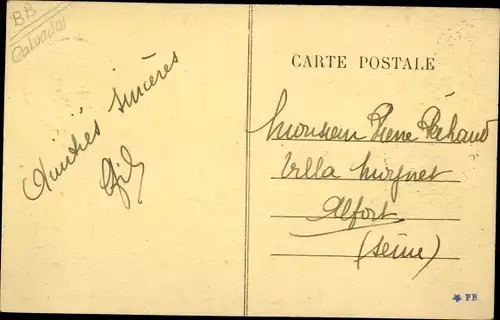 BB
Calvados
Amitiés sincères
CARTE POSTALE
Monsieur Pierre Péchaud
Villa Moynet
Alfort
(Seine)
PB